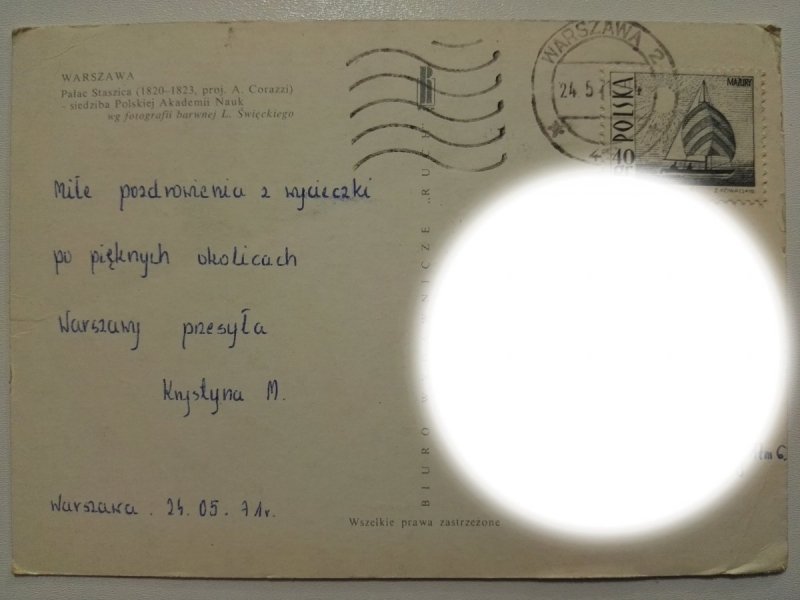 WARSZAWA
Pałac Staszica (1820–1823, proj. A. Corazzi)
- siedziba Polskiej Akademii Nauk
wg fotografii barwnej L. Święckiego
Miłe pozdrowienia z wycieczki
po pięknych okolicach
Warszawy przesyła
Krystyna M.
Warszawa. 24. 05. 71r.
Wszelkie prawa zastrzeżone
BIURO "RUCH"
WARSZAWA 2
24.5
MAZURY
POLSKA
40
GR